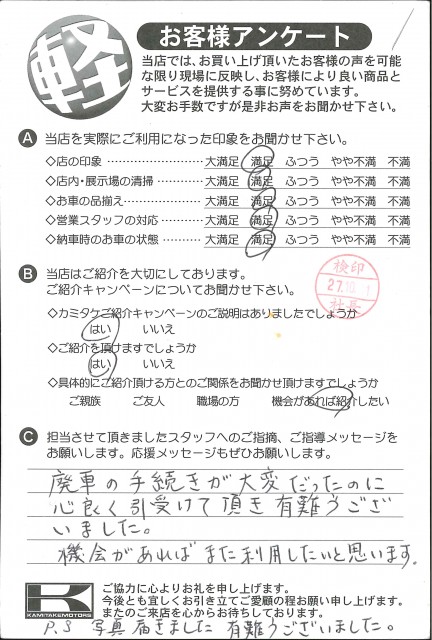 軽
お客様アンケート
当店では、お買い上げ頂いたお客様の声を可能
な限り現場に反映し、お客様により良い商品と
サービスを提供する事に努めています。
大変お手数ですが是非お声をお聞かせ下さい。
A 当店を実際にご利用になった印象をお聞かせ下さい。
◇店の印象 ……………… 大満足 満足 ふつう やや不満 不満
◇店内・展示場の清掃 ………… 大満足 満足 ふつう やや不満 不満
◇お車の品揃え ……………… 大満足 満足 ふつう やや不満 不満
◇営業スタッフの対応 ………… 大満足 満足 ふつう やや不満 不満
◇納車時のお車の状態 ………… 大満足 満足 ふつう やや不満 不満
B 当店はご紹介を大切にしております。
ご紹介キャンペーンについてお聞かせ下さい。
検印
27.10.1
社長
◇カミタケご紹介キャンペーンのご説明はありましたでしょうか
はい いいえ
◇ご紹介を頂けますでしょうか
はい いいえ
◇具体的にご紹介頂ける方とのご関係をお聞かせ頂けますでしょうか
ご親族 ご友人 職場の方 機会があれば紹介したい
C 担当させて頂きましたスタッフへのご指摘、ご指導メッセージを
お願いします。応援メッセージもぜひお願いします。
廃車の手続きが大変だったのに
心良く引受けて頂き有難うござ
いました。
機会があればまた利用したいと思います。
K
KAMITAKEMOTORS
ご協力に心よりお礼を申し上げます。
今後とも宜しくお引き立てご愛顧の程お願い申し上げます。
またのご来店を心からお待ちしております。
P.S 写真届きました 有難うございました。